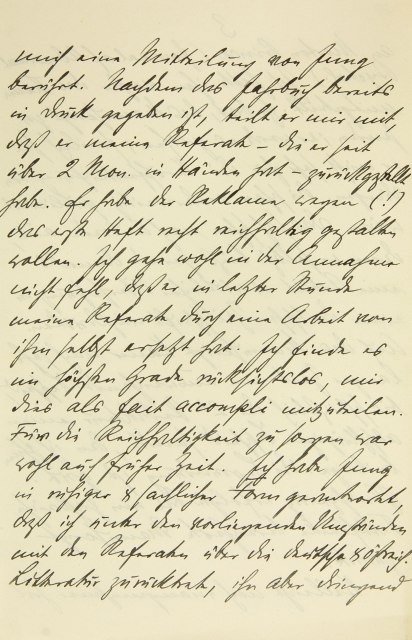 mich eine Mitteilung von Jung
berührt. Nachdem das Jahrbuch bereits
in Druck gegeben ist, teilt er mir mit,
daß er meine Referate – die er seit
über 2 Mon. in Händen hat – zurückgestellt
habe. Er habe der Reklame wegen (!)
das erste Heft recht reichhaltig gestalten
wollen. Ich gehe wohl in der Annahme
nicht fehl, daß er in letzter Stunde
meine Referate durch eine Arbeit von
ihm selbst ersetzt hat. Ich finde es
im höchsten Grade rücksichtslos, mir
dies als fait accompli mitzuteilen.
Für die Reichhaltigkeit zu sorgen war
wohl auch früher Zeit. Ich habe Jung
in ruhiger & sachlicher Form geantwortet,
daß ich unter den vorliegenden Umständen
mit den Referaten über die deutsche & österreich.
Litteratur zurücktrete, ihn aber dringend